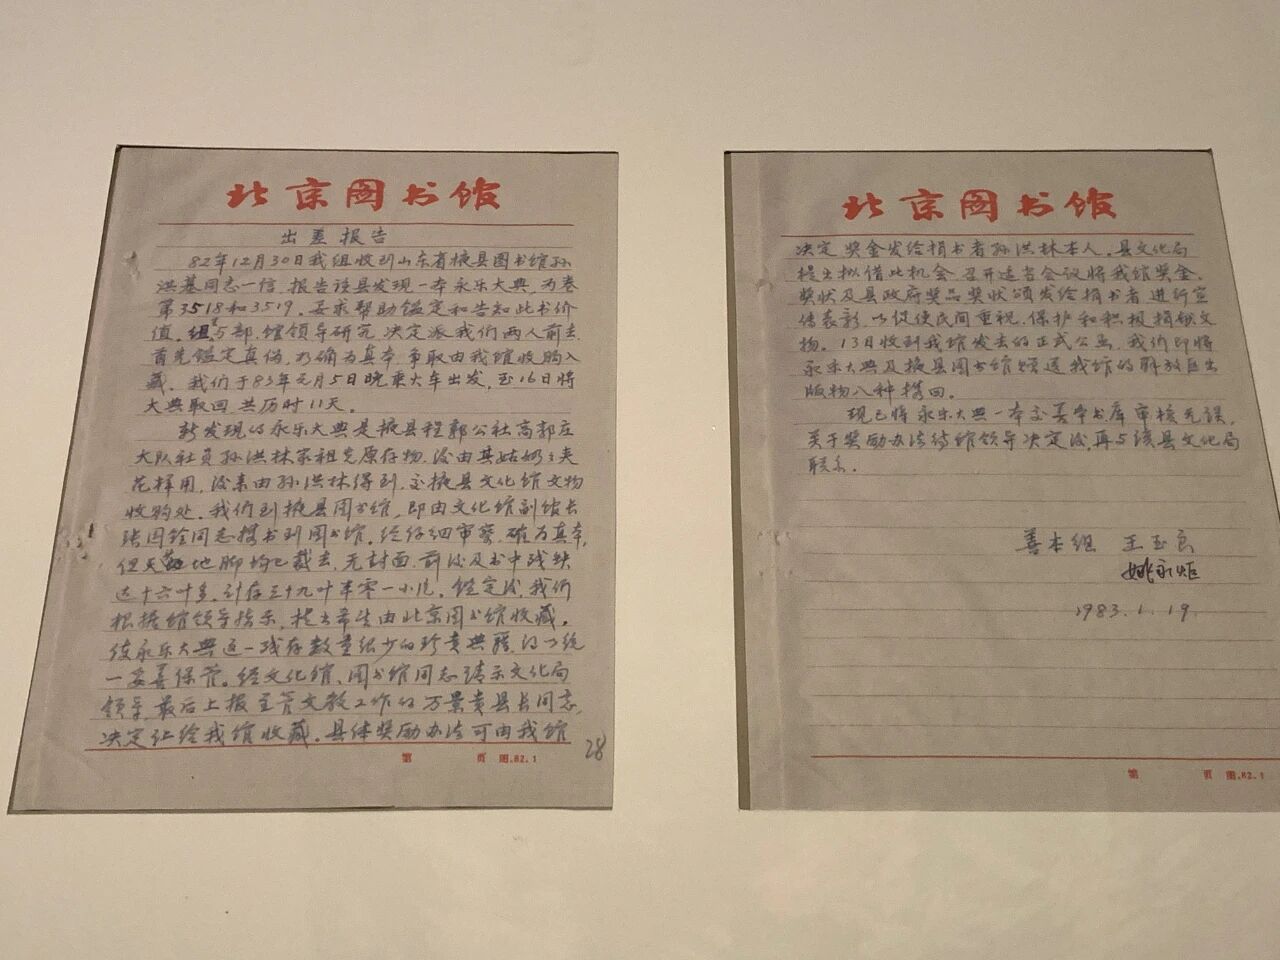 北京图书馆
出差报告
82年12月30日我组收到山东省掖县图书馆孙
洪基同志一信，报告该县发现一本永乐大典，为卷
第3518和3519。要求帮助鉴定和告知此书价
值。组与部、馆领导研究，决定派我们两人前去，
首先鉴定真伪，如确为真本，争取由我馆收购入
藏。我们于83年元月5日晚乘火车出发，至16日将
大典取回，共历时11天。
新发现的永乐大典是掖县程郭公社高郭庄
大队社员孙洪林家祖先原存物，后由其姑奶奶夹
花样用，后来由孙洪林得到，交掖县文化馆文物
收购处。我们到掖县图书馆，即由文化馆副馆长
张国铨同志携书到图书馆。经仔细审察，确为真本，
但天地脚均已截去，无封面，前后及书中残缺
达十六叶多，计存三十九叶半零一小片。鉴定后，我们
根据馆领导指示，提出希望由北京图书馆收藏，
使永乐大典这一残存数量很少的珍贵典籍，得以统
一妥善保管。经文化馆、图书馆同志请示文化局
领导，最后上报主管文教工作的万景贵县长同志，
决定让给我馆收藏。具体奖励办法可由我馆
28
第 页 图.82.1
北京图书馆
决定奖金发给捐书者孙洪林本人。县文化局
提出拟借此机会，召开适当会议将我馆奖金、
奖状及县政府奖品奖状颁发给捐书者，进行宣
传表彰，以促使民间重视、保护和积极捐献文
物。13日收到我馆发去的正式公函，我们即将
永乐大典及掖县图书馆赠送我馆的解放区出
版物八种携回。
现已将永乐大典一本交善本书库审核无误，
关于奖励办法待馆领导决定后，再与该县文化局
联系。
善本组 王玉良
姚永炬
1983.1.19.
第 页 图.82.1